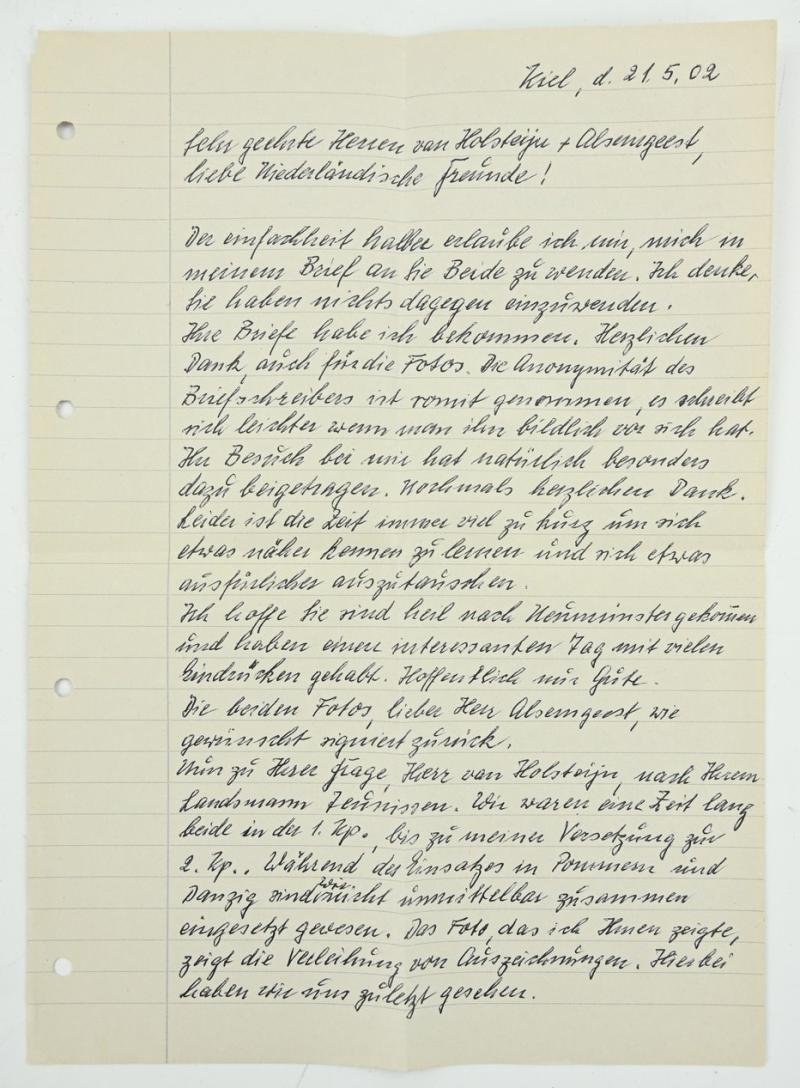 Kiel, d. 21.5.02
Sehr geehrte Herren van Holsteijn + Alsemgeest,
liebe Niederländische Freunde!
Der einfachheit halber erlaube ich mir, mich in
meinem Brief an Sie Beide zu wenden. Ich denke,
Sie haben nichts dagegen einzuwenden.
Ihre Briefe habe ich bekommen. Herzlichen
Dank, auch für die Fotos. Die Anonymität des
Briefschreibers ist somit genommen, es schreibt
sich leichter wenn man ihn bildlich vor sich hat.
Ihr Besuch bei mir hat natürlich besonders
dazu beigetragen. Nochmals herzlichen Dank.
Leider ist die Zeit immer viel zu kurz um sich
etwas näher kennen zu lernen und sich etwas
ausfürlicher auszutauschen.
Ich hoffe Sie sind heil nach Neumünster gekommen
und haben einen interessanten Tag mit vielen
Eindrücken gehabt. Hoffentlich nur Gute.
Die beiden Fotos, lieber Herr Alsemgeest, wie
gewünscht signiert zurück.
Nun zu Ihrer Frage, Herr van Holsteijn, nach Ihrem
Landsmann Teunissen. Wir waren eine Zeit lang
beide in der 1. Kp., bis zu meiner Versetzung zur
2. Kp.. Während des Einsatzes in Pommern und
Danzig sind wir nicht unmittelbar zusammen
eingesetzt gewesen. Das Foto, das ich Ihnen zeigte,
zeigt die Verleihung von Auszeichnungen. Hierbei
haben wir uns zuletzt gesehen.